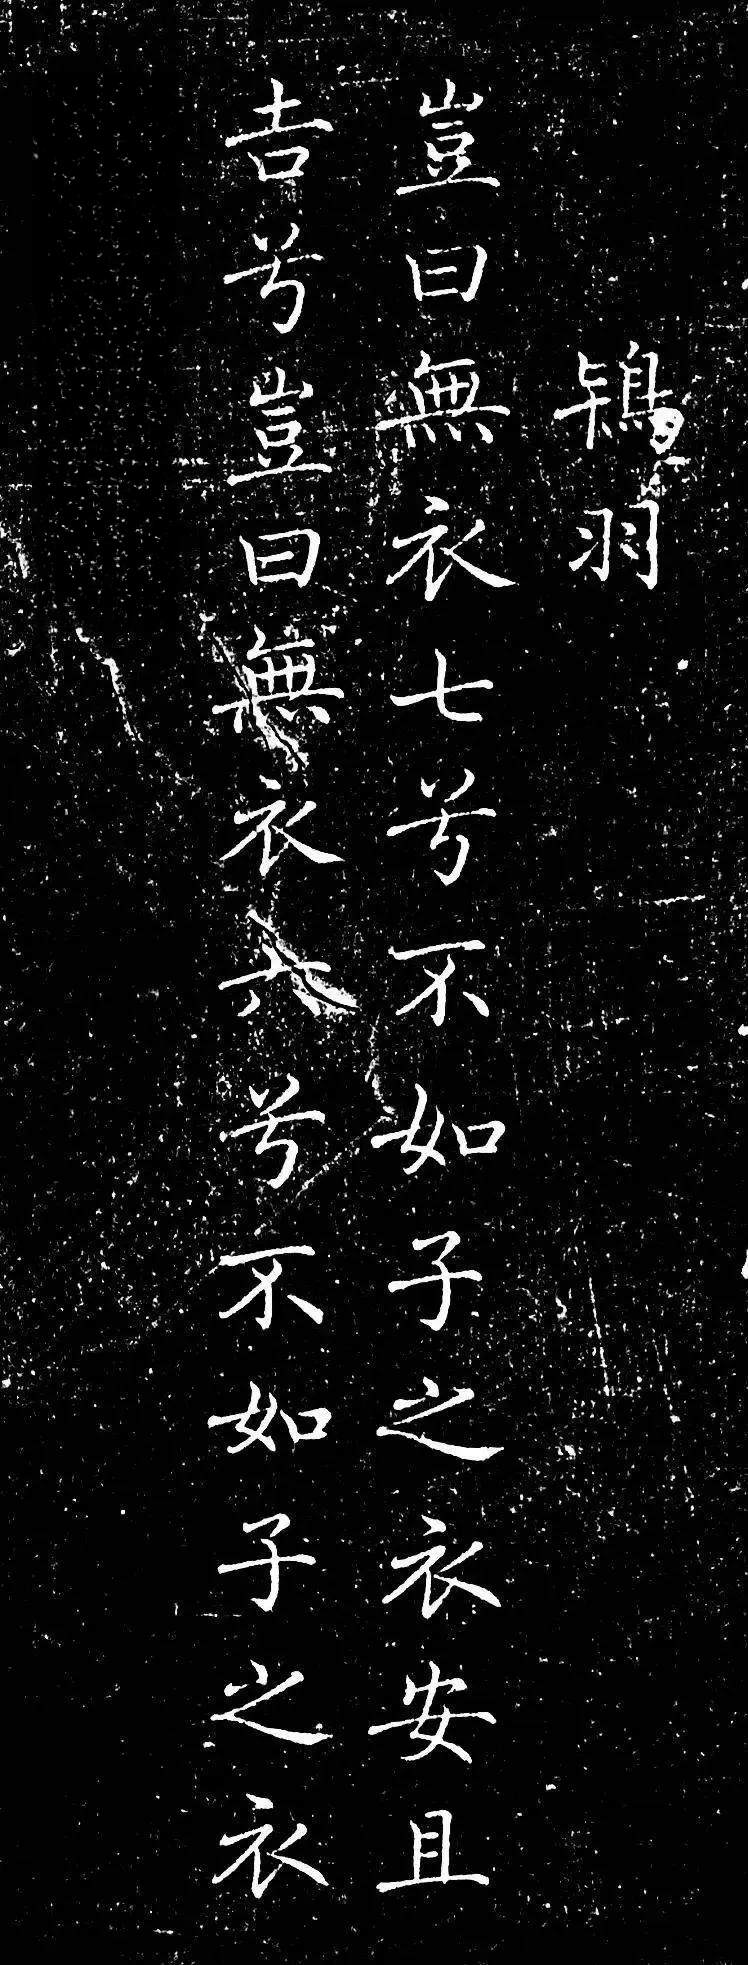 鴇羽
豈曰無衣七兮不如子之衣安且
吉兮豈曰無衣六兮不如子之衣